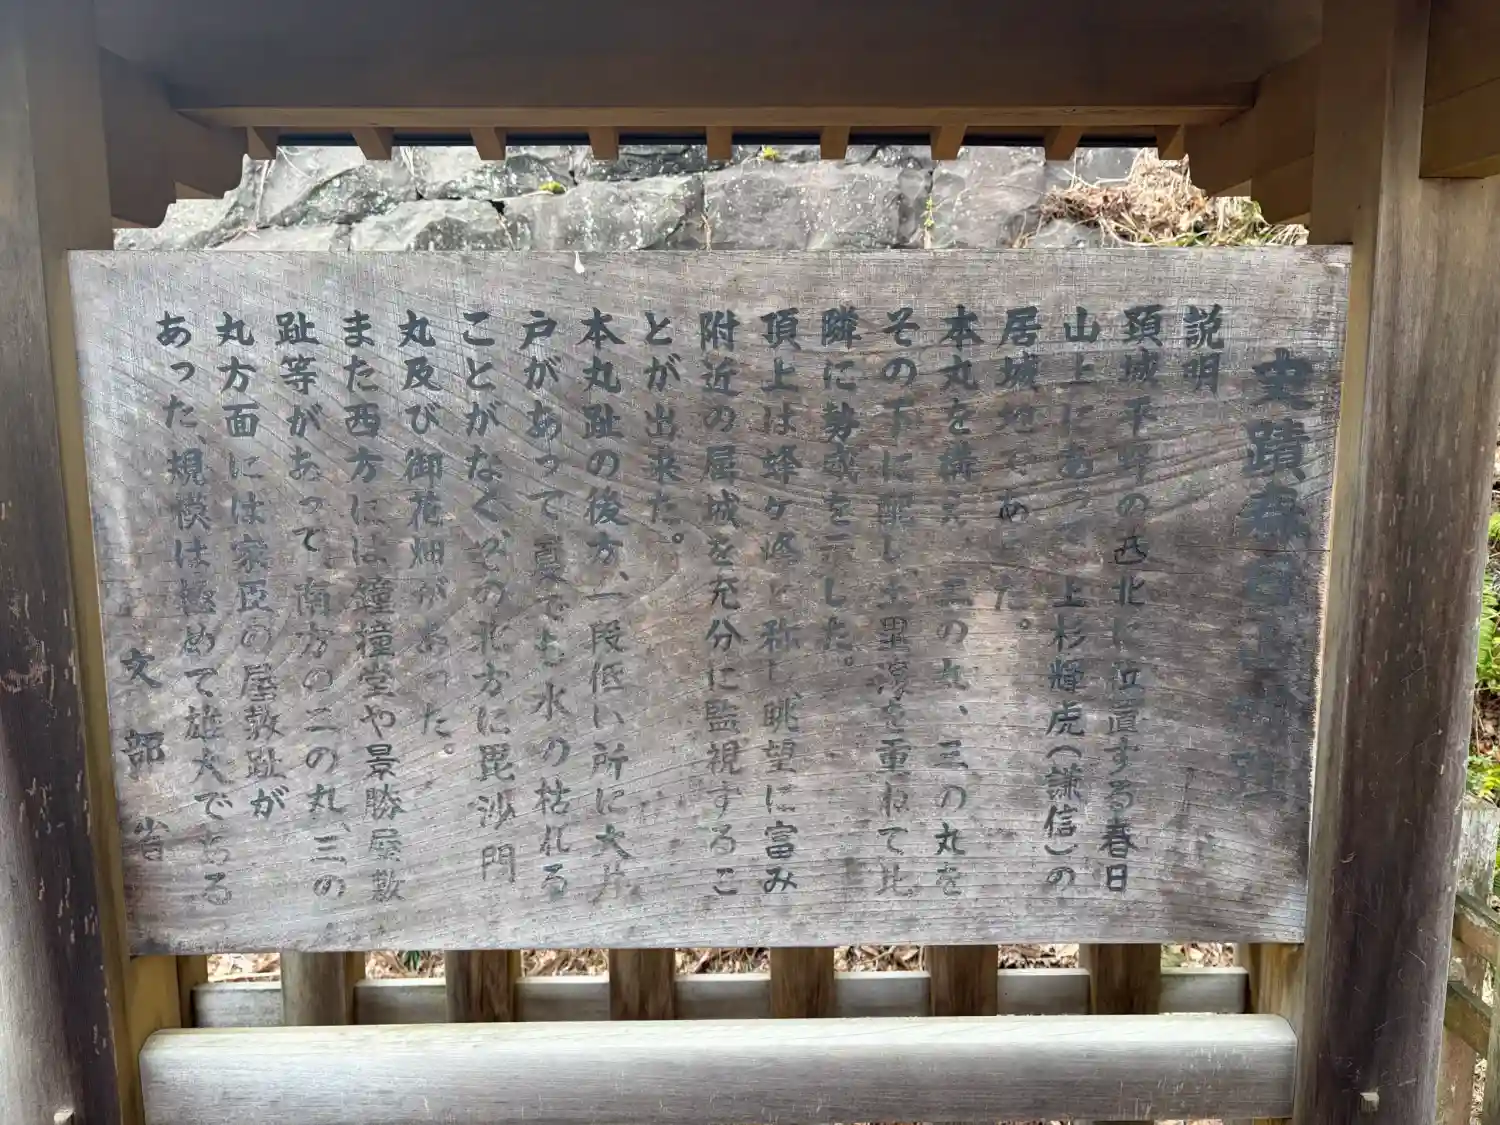 史蹟春日山城趾
説明
頚城平野の西北に位置する春日
山上にあって上杉輝虎（謙信）の
居城地であった。
本丸を構え、二の丸、三の丸を
その下に配し、土塁濠を重ねて比
隣に勢威を示した。
頂上は蜂ケ峰と称し眺望に富み
附近の属城を充分に監視するこ
とが出来た。
本丸趾の後方、一段低い所に大井
戸があって夏でも水の枯れる
ことがなく、その北方に毘沙門
丸及び御花畑があった。
また西方には鐘撞堂や景勝屋敷
趾等があって南方の二の丸、三の
丸方面には家臣の屋敷趾が
あった、規模は極めて雄大である
文部省